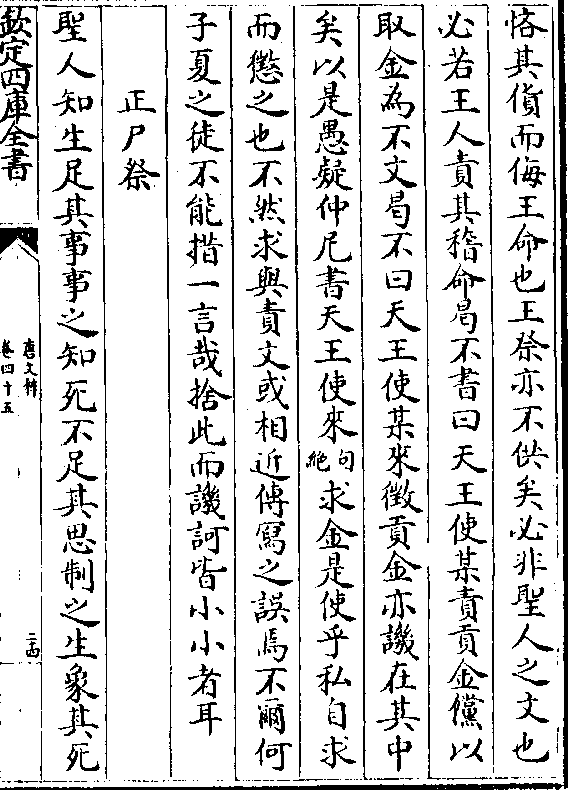 悋其貨而侮王命也王祭亦不供矣必非聖人之文也
必若王人責其稽命曷不書曰天王使某責貢金儻以
取金為不文曷不曰天王使某來徵貢金亦譏在其中
矣以是愚疑仲尼書天王使來句絶求金是使乎私自求
而懲之也不然求與責文或相近傳寫之誤焉不爾何
子夏之徒不能措一言哉捨此而譏訶皆小小者耳
正尸祭
聖人知生足其事事之知死不足其思制之生象其死
欽定四庫全書
唐文粹
卷四十五
二十四